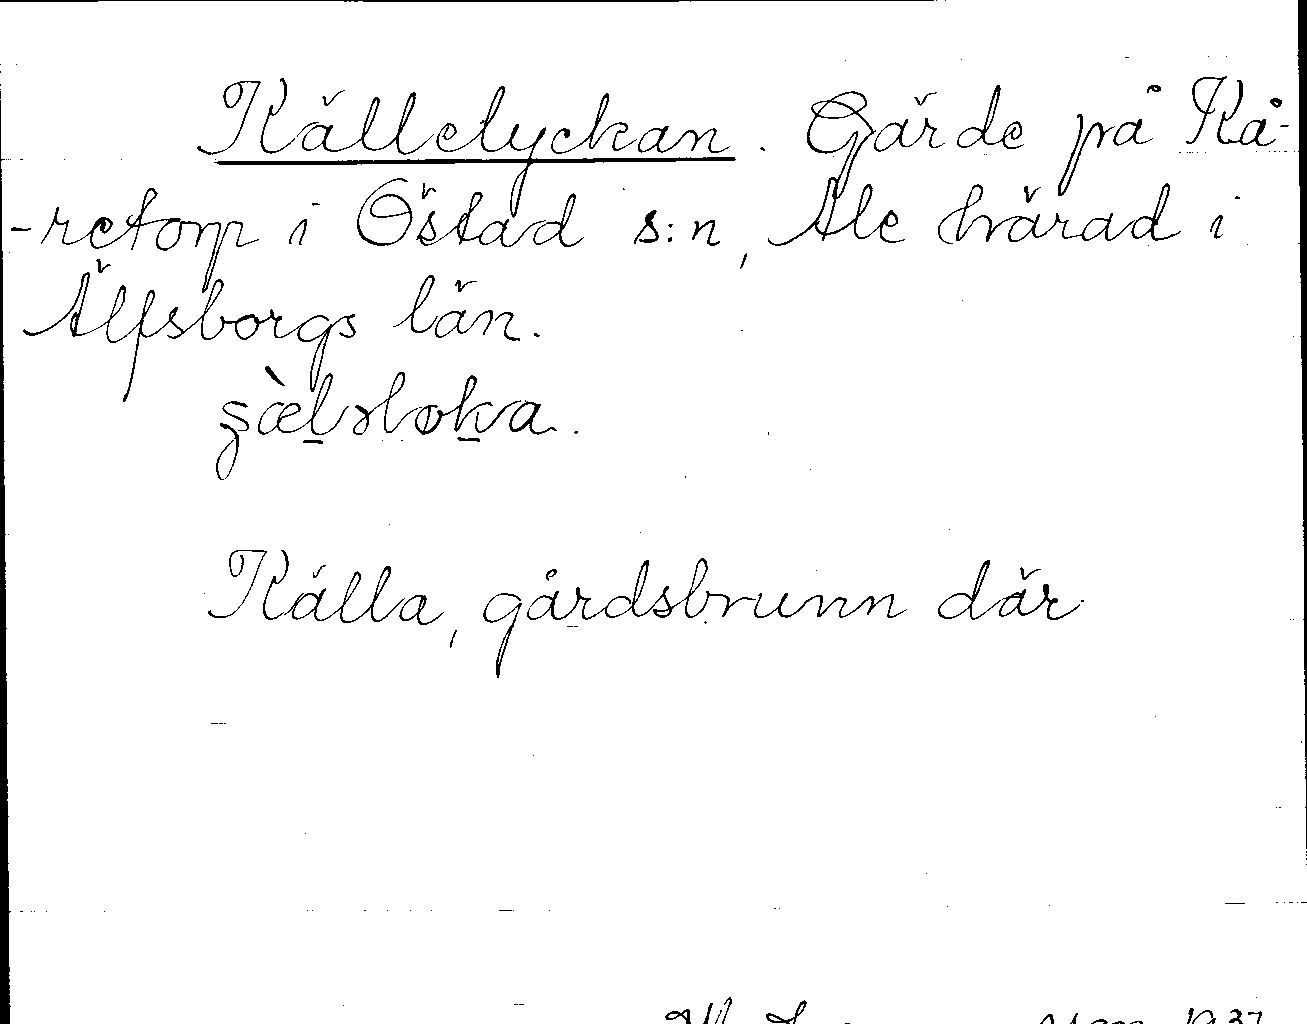 Källelyckan. Gärde på Kå-
-retorp i Östad s:n, Ale härad i
Älfsborgs län.
Källa, gårdsbrunn där
1937